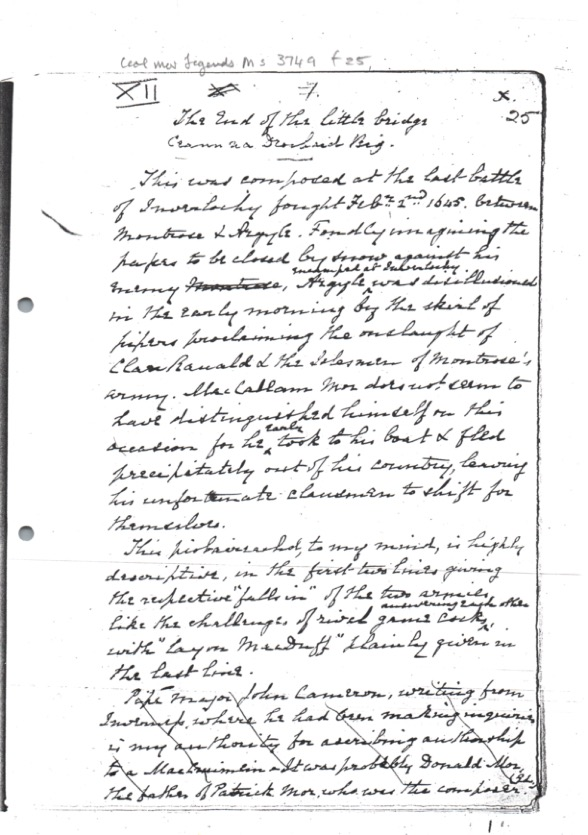 Ceol mor Legends MS 3749 f 25.
XII 7. x.
25
The End of the little bridge
Ceann na Drochaid Big.
This was composed at the last battle
of Inverlochy fought Feb. 2nd 1645. between
Montrose & Argyle. Fondly imagining the
passes to be closed by snow against his
enemy Montrose, encamped at Inverlochy Argyle was disillusioned
in the early morning by the skirl of
pipers proclaiming the onslaught of
Clan Ranald & the Islesmen of Montrose's
army. MacCallam Mor does not seem to
have distinguished himself on this
occasion for he early took to his boat & fled
precipitately out of his country, leaving
his unfortunate clansmen to shift for
themselves.
This piobaireachd, to my mind, is highly
descriptive, in the first two lines giving
the respective "falls in" of the two armies
like the challenges of rival game cocks, answering each other
with "lay on MacDuff" plainly given in
the last line.
Pipe major John Cameron, writing from
Inverness, where he had been making inquiries
is my authority for ascribing authorship
to a MacCruimein. It was probably Donald Mor,
the father of Patrick Mor, who was the composer.